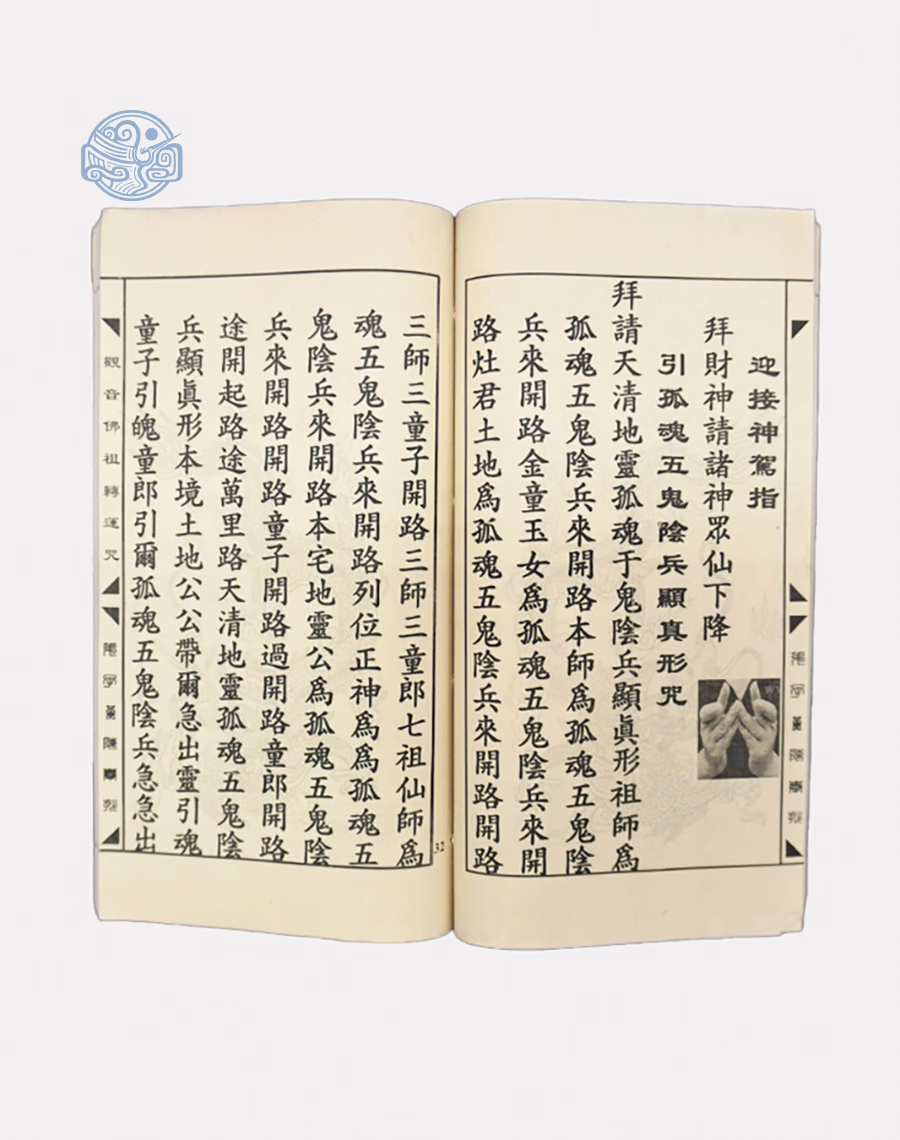 迎接神駕指
拜財神請諸神眾仙下降
引孤魂五鬼陰兵顯真形咒
拜請天清地靈孤魂于鬼陰兵顯眞形祖師爲
孤魂五鬼陰兵來開路本師爲孤魂五鬼陰
兵來開路金童玉女爲孤魂五鬼陰兵來開
路灶君土地爲孤魂五鬼陰兵來開路開路
32
三師三童子開路三師三童郎七祖仙師爲
魂五鬼陰兵來開路列位正神爲爲孤魂五
鬼陰兵來開路本宅地靈公爲孤魂五鬼陰
兵來開路開路童子開路過開路童郎開路
途開起路途萬里路天清地靈孤魂五鬼陰
兵顯眞形本境土地公公帶爾急出靈引魂
童子引魄童郎引爾孤魂五鬼陰兵急急出
觀音佛祖轉運咒